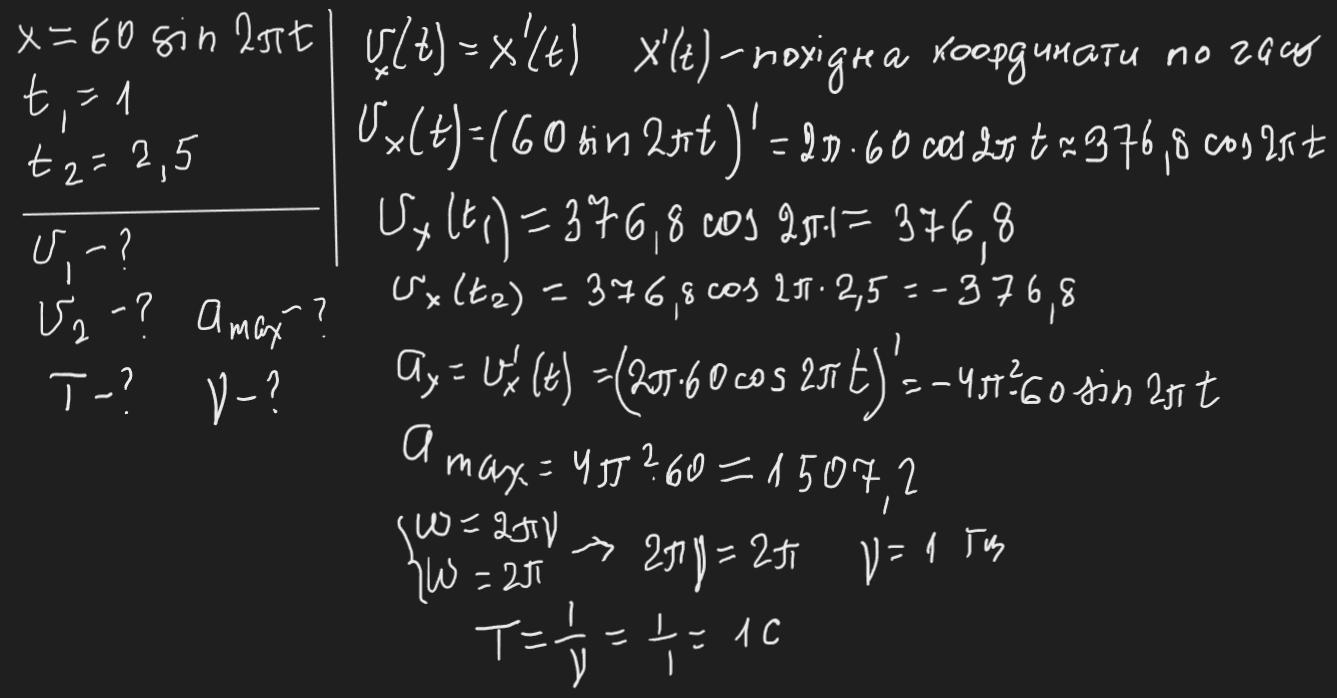 x = 60 sin 2πt
t₁ = 1
t₂ = 2,5
υ₁ - ?
υ₂ - ? a max - ?
T - ? ν - ?
υₓ(t) = x'(t) x'(t) - похідна координати по часу
υₓ(t) = (60 sin 2πt)' = 2π · 60 cos 2πt ≈ 376,8 cos 2πt
υₓ(t₁) = 376,8 cos 2π·1 = 376,8
υₓ(t₂) = 376,8 cos 2π · 2,5 = - 376,8
aₓ = υₓ'(t) = (2π·60 cos 2πt)' = - 4π²·60 sin 2πt
a max = 4π²·60 = 1507,2
{ω = 2πν
{ω = 2π → 2πν = 2π ν = 1 Гц
T = 1/ν = 1/1 = 1 с